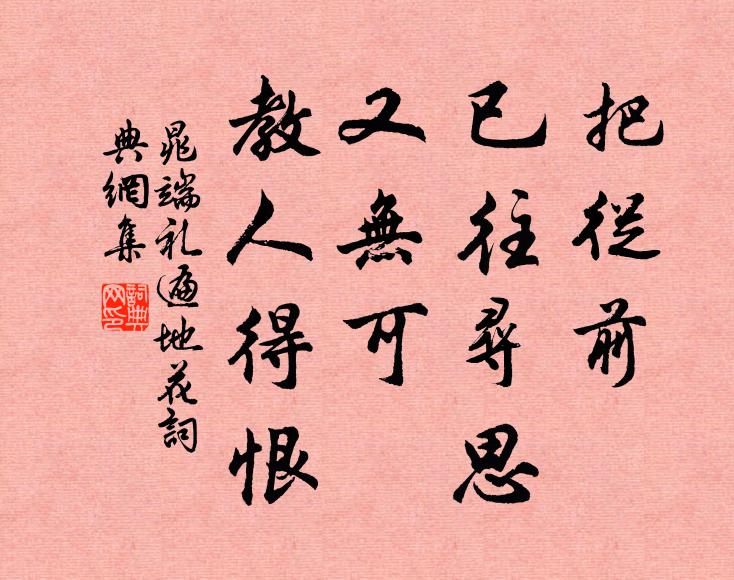 把從前
已往尋思
又無可
教人得恨
晁端礼遍地花詞
典網集
詞典网印